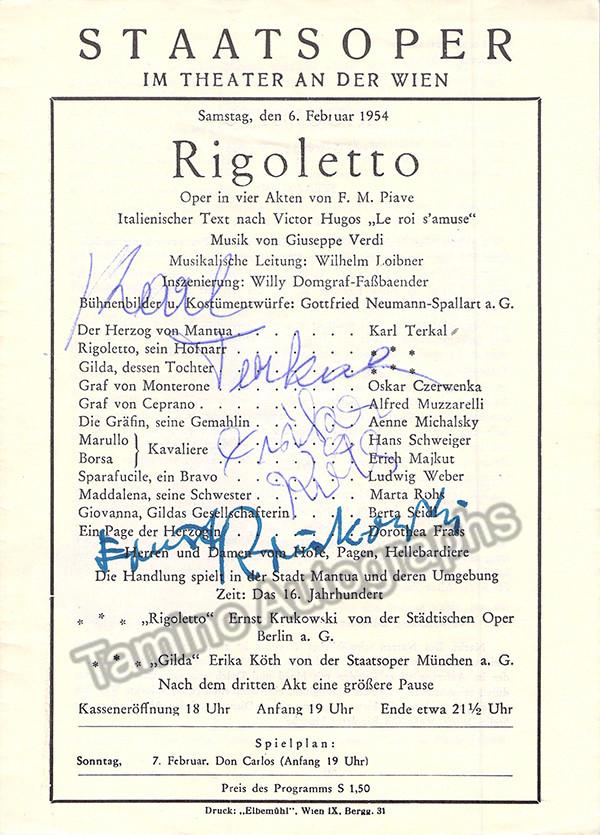 STAATSOPER
IM THEATER AN DER WIEN
Samstag, den 6. Februar 1954
Rigoletto
Oper in vier Akten von F. M. Piave
Italienischer Text nach Victor Hugos „Le roi s'amuse“
Musik von Giuseppe Verdi
Musikalische Leitung: Wilhelm Loibner
Inszenierung: Willy Domgraf-Faßbaender
Bühnenbilder u. Kostümentwürfe: Gottfried Neumann-Spallart a. G.
Der Herzog von Mantua . . . . . . . Karl Terkal
Rigoletto, sein Hofnarr . . . . . . . * * *
Gilda, dessen Tochter . . . . . . . * * *
Graf von Monterone . . . . . . . Oskar Czerwenka
Graf von Ceprano . . . . . . . Alfred Muzzarelli
Die Gräfin, seine Gemahlin . . . . . . Aenne Michalsky
Marullo } Kavaliere . . . . . . Hans Schweiger
Borsa } Kavaliere . . . . . . Erich Majkut
Sparafucile, ein Bravo . . . . . . . Ludwig Weber
Maddalena, seine Schwester . . . . . . Marta Rohs
Giovanna, Gildas Gesellschafterin . . . . Berta Seidl
Ein Page der Herzogin . . . . . . . Dorothea Frass
Herren und Damen vom Hofe, Pagen, Hellebardiere
Die Handlung spielt in der Stadt Mantua und deren Umgebung
Zeit: Das 16. Jahrhundert
* * * „Rigoletto“ Ernst Krukowski von der Städtischen Oper
Berlin a. G.
* * * „Gilda“ Erika Köth von der Staatsoper München a. G.
Nach dem dritten Akt eine größere Pause
Kasseneröffnung 18 Uhr Anfang 19 Uhr Ende etwa 21½ Uhr
Spielplan:
Sonntag, 7. Februar. Don Carlos (Anfang 19 Uhr)
Preis des Programms S 1,50
Druck: „Elbemühl“, Wien IX, Bergg. 31
Karl
Terkal
Erika
Köth
Ernst Krukowski
Tamino Autographs